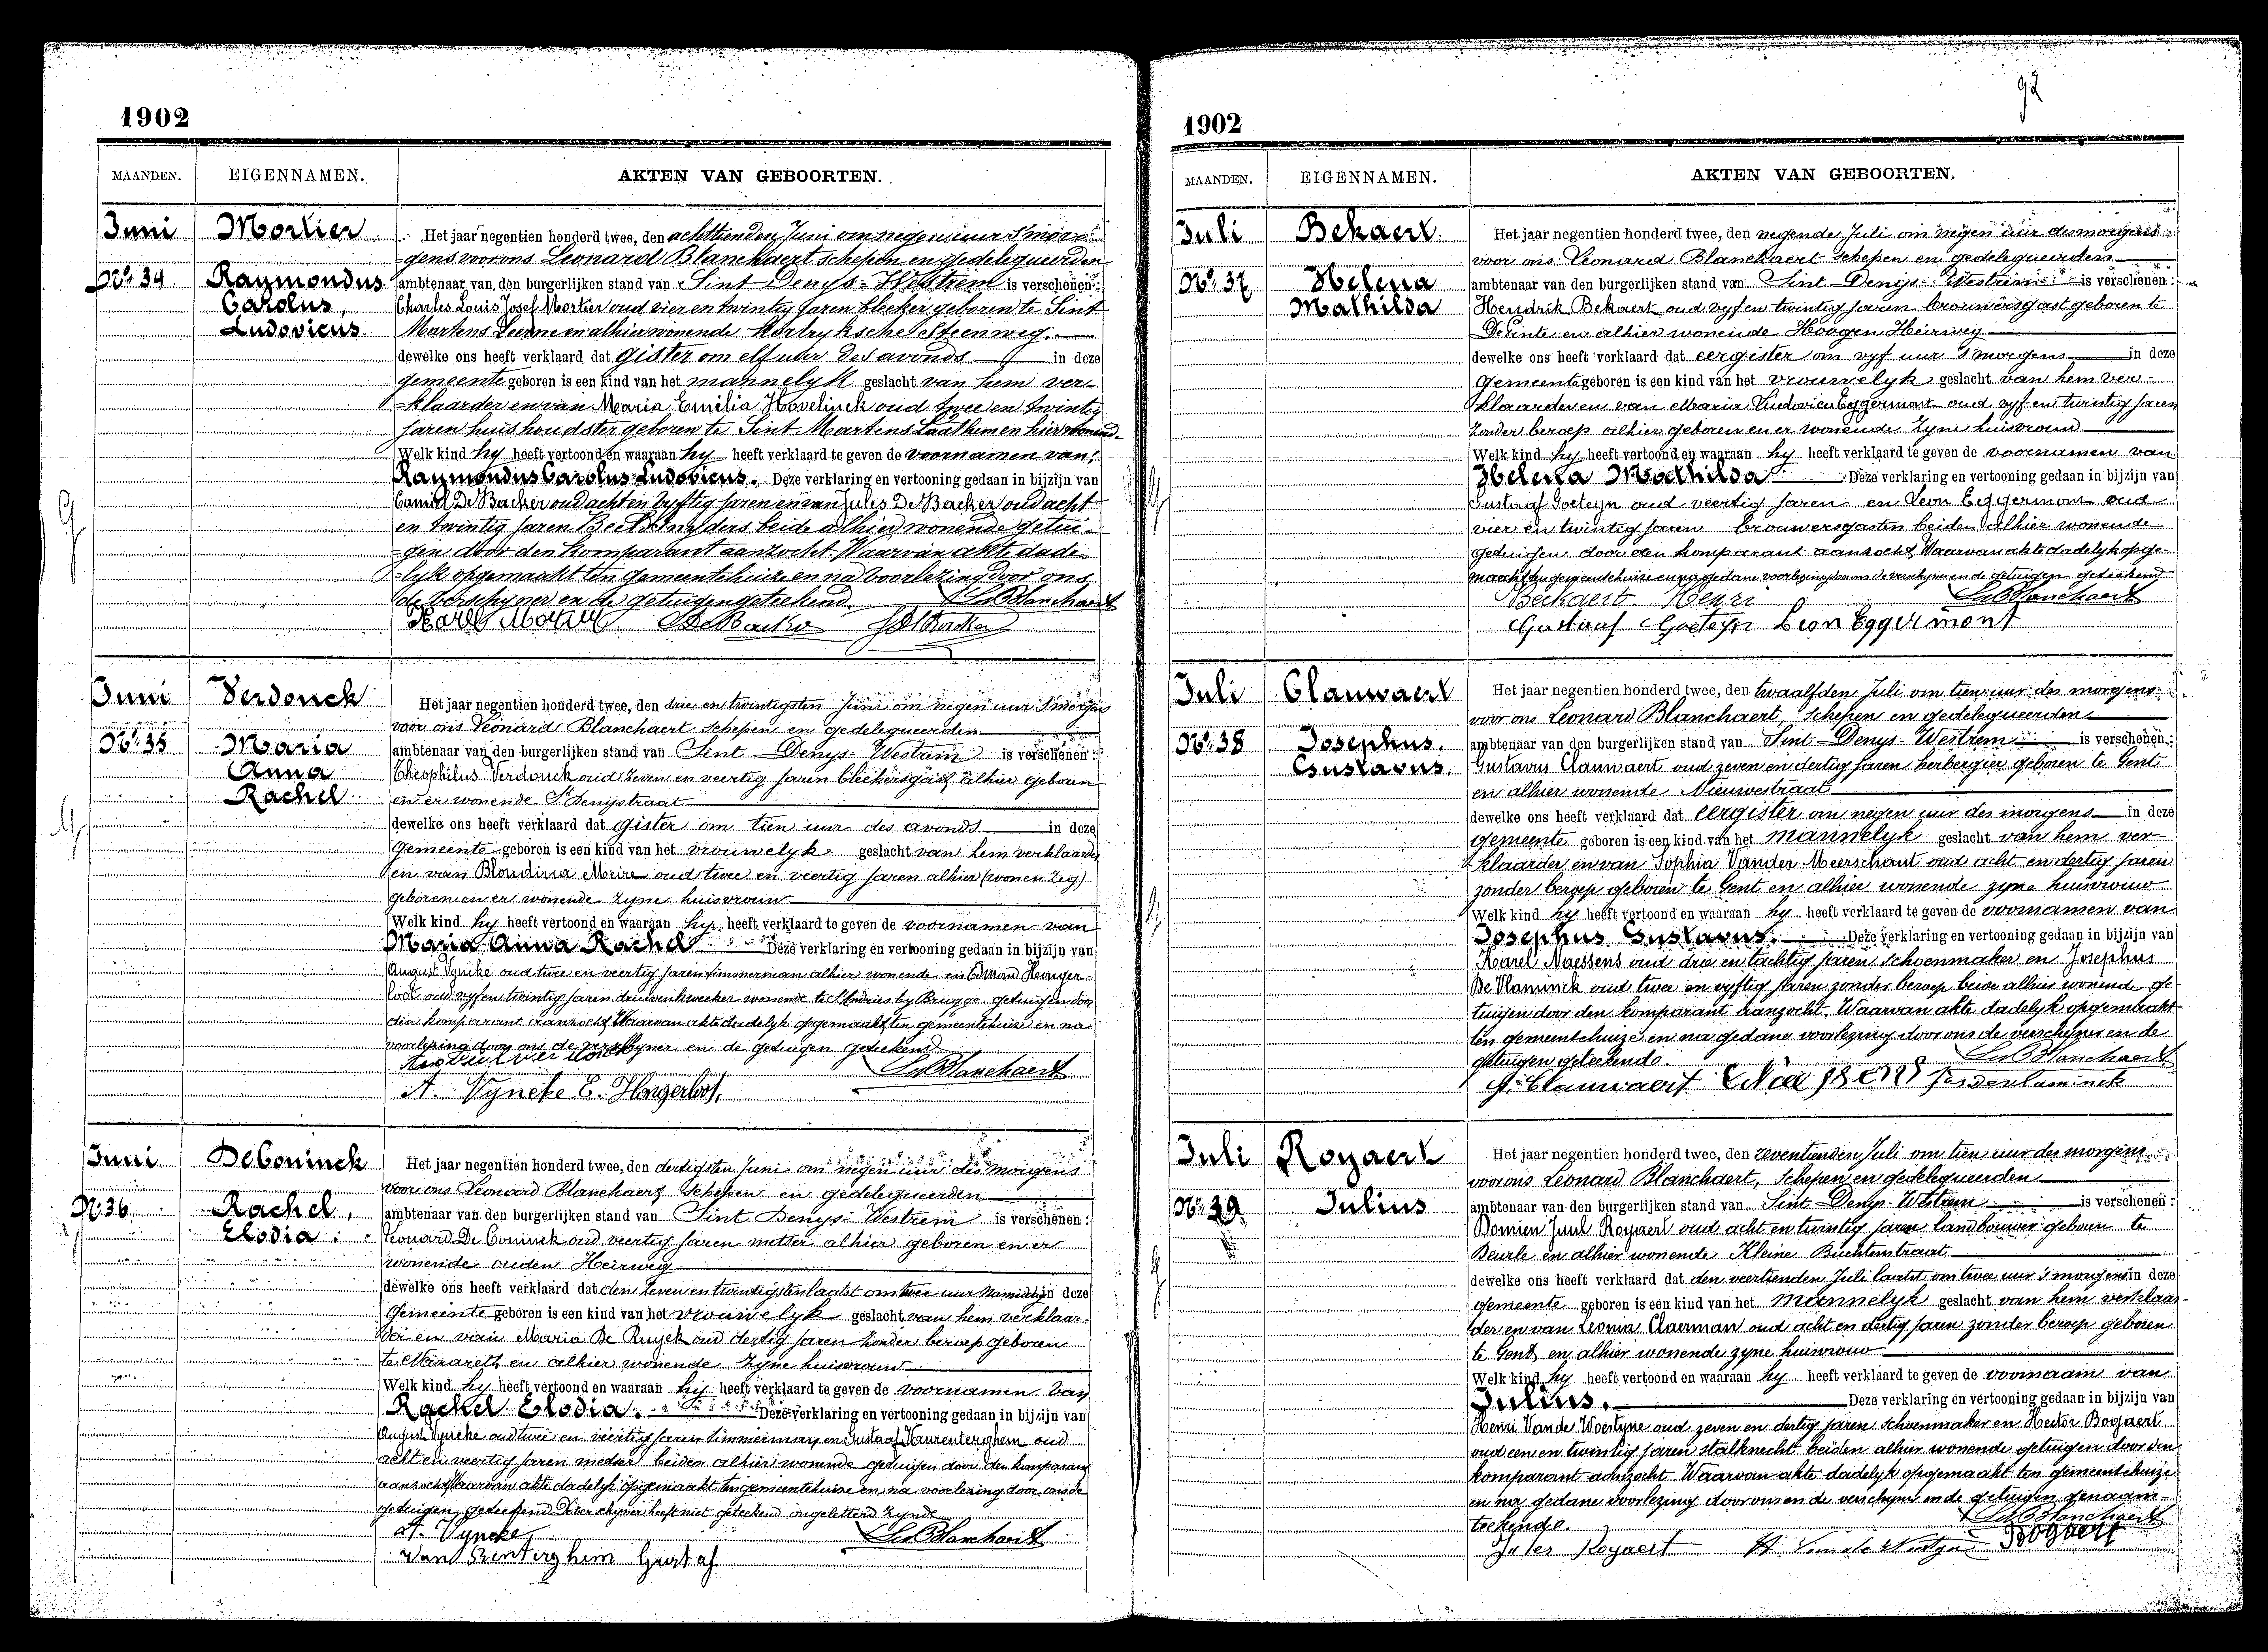 1902
MAANDEN. EIGENNAMEN. AKTEN VAN GEBOORTEN.
Juni Mortier
No. 34. Raymondus
Carolus,
Ludovicus
Het jaar negentien honderd twee, den achttienden Juni om negen uur 'smor-
gens voor ons Leonard Blanchaert schepen en gedelegueerden
ambtenaar van den burgerlijken stand van Sint Denys-Westrem is verschenen:
Charles Louis Josef Mortier oud vier en twintig jaren bleeker geboren te Sint
Martens Leerne en alhier wonende Kortryksche Steenweg.
dewelke ons heeft verklaard dat gister om elf uur des avonds in deze
gemeente geboren is een kind van het mannelyk geslacht van hem ver-
klaarder en van Maria Emilia Hovelinck oud twee en twintig
jaren huishoudster geboren te Sint Martens Laathem en hier wonend.
Welk kind hy heeft vertoond en waaraan hy heeft verklaard te geven de voornamen van:
Raymondus Carolus Ludovicus. Deze verklaring en vertooning gedaan in bijzijn van
Camiel De Backer oud acht en vyftig jaren en van Jules De Backer oud acht
en twintig jaren beide alhier wonende getui-
gen door den komparant aanzocht. Waarvan akte dade-
lyk opgemaakt ten gemeentehuize en na voorlezing door ons
de verschyner en de getuigen geteekend. Ld Blanchaert
Karel Mortier De Backer J De Backer
Juni Verdonck
No. 35 Maria
Anna
Rachel
Het jaar negentien honderd twee, den drie en twintigsten Juni om negen uur 's morgens
voor ons Leonard Blanchaert schepen en gedelegueerden
ambtenaar van den burgerlijken stand van Sint Denys-Westrem is verschenen:
Theophilus Verdonck oud zeven en veertig jaren bleekersgast alhier geboren
en er wonende St Denijstraat
dewelke ons heeft verklaard dat gister om tien uur des avonds in deze
gemeente geboren is een kind van het vrouwelyk geslacht van hem verklaarder
en van Blondina Meire oud twee en veertig jaren alhier
geboren en er wonende zyne huisvrouw
Welk kind hy heeft vertoond en waaraan hy heeft verklaard te geven de voornamen van
Maria Anna Rachel Deze verklaring en vertooning gedaan in bijzijn van
August Vyncke oud twee en veertig jaren timmerman alhier wonende en Edmond Honger-
loot oud vyf en twintig jaren druivenkweeker wonende te St Andries by Brugge getuigen door
den komparant aanzocht, Waarvan akte dadelyk opgemaakt ten gemeentehuize en na
voorlezing door ons de verschyner en de getuigen geteekend
Ld Blanchaert
A. Vyncke E. Hongerloot,
Juni De Coninck
No. 36 Rachel,
Elodia.
Het jaar negentien honderd twee, den dertigsten Juni om negen uur des morgens
voor ons Leonard Blanchaert schepen en gedelegueerden
ambtenaar van den burgerlijken stand van Sint Denys-Westrem is verschenen:
Leonard De Coninck oud veertig jaren metser alhier geboren en er
wonende ouden Heirweg
dewelke ons heeft verklaard dat den zeven en twintigsten laatst om twee uur namiddag in deze
gemeente geboren is een kind van het vrouwelyk geslacht van hem verklaar-
der en van Maria De Ruyck oud dertig jaren zonder beroep geboren
te Nazareth en alhier wonende zyne huisvrouw
Welk kind hy heeft vertoond en waaraan hij heeft verklaard te geven de voornamen van
Rachel Elodia. Deze verklaring en vertooning gedaan in bijzijn van
August Vyncke oud twee en veertig jaren timmerman en Gustaaf Vanrenterghem oud
acht en veertig jaren metser beiden alhier wonende getuigen door den komparant
aanzocht Waarvan akte dadelyk opgemaakt ten gemeentehuize en na voorlezing door ons de
getuigen geteekend De verschyner heeft niet geteekend ongeletterd zynde
A. Vyncke Ld Blanchaert
Van Renterghem Gustaf
92
1902
MAANDEN. EIGENNAMEN. AKTEN VAN GEBOORTEN.
Juli Bekaert.
No. 37 Helena
Mathilda
Het jaar negentien honderd twee, den negende Juli om negen uur des morgens
voor ons Leonard Blanchaert schepen en gedelegueerden
ambtenaar van den burgerlijken stand van Sint Denys-Westrem is verschenen:
Hendrik Bekaert oud vyf en twintig jaren brouwersgast geboren te
De Pinte en alhier wonende Hoogen Heirweg
dewelke ons heeft verklaard dat eergister om vyf uur 's morgens in deze
gemeente geboren is een kind van het vrouwelyk geslacht van hem ver-
klaarder en van Maria Ludovica Eggermont oud vyf en twintig jaren
zonder beroep alhier geboren en er wonende zyne huisvrouw
Welk kind hy heeft vertoond en waaraan hy heeft verklaard te geven de voornamen van
Helena Mathilda Deze verklaring en vertooning gedaan in bijzijn van
Gustaaf Goeteyn oud veertig jaren en Leon Eggermont oud
vier en twintig jaren brouwersgasten beiden alhier wonende
getuigen door den komparant aanzocht, Waarvan akte dadelyk opge-
maakt ten gemeentehuize en na gedane voorlezing door ons de verschyner en de getuigen geteekend
Bekaert Henri Ld Blanchaert
Gustauf Goeteyn Leon Eggermont
Juli Clauwaert
No. 38 Josephus.
Gustavus.
Het jaar negentien honderd twee, den twaalfden Juli om tien uur des morgens
voor ons Leonard Blanchaert, Schepen en gedelegueerden
ambtenaar van den burgerlijken stand van Sint-Denys-Westrem is verschenen:
Gustavus Clauwaert oud zeven en dertig jaren herbergier geboren te Gent
en alhier wonende Nieuwestraat
dewelke ons heeft verklaard dat eergister om negen uur des morgens in deze
gemeente geboren is een kind van het mannelyk geslacht van hem ver-
klaarder en van Sophia Vander Meerschaut oud acht en dertig jaren
zonder beroep geboren te Gent en alhier wonende zyne huisvrouw
Welk kind hy heeft vertoond en waaraan hy heeft verklaard te geven de voornamen van
Josephus Gustavus. Deze verklaring en vertooning gedaan in bijzijn van
Karel Naessens oud drie en tachtig jaren schoenmaker en Josephus
De Vlaminck oud twee en vyftig jaren zonder beroep beide alhier wonende ge-
tuigen door den komparant aanzocht. Waarvan akte dadelyk opgemaakt
ten gemeentehuize en na gedane voorlezing door ons de verschyner en de
getuigen geteekend. Ld Blanchaert
G. Clauwaert
Juli Royaert
No. 39 Julius
Het jaar negentien honderd twee, den zeventienden Juli om tien uur des morgens
voor ons Leonard Blanchaert, Schepen en gedelegueerden
ambtenaar van den burgerlijken stand van Sint-Denys-Westrem is verschenen:
Domien Juul Royaert oud acht en twintig jaren landbouwer geboren te
Deurle en alhier wonende Kleine Buchtenstraat
dewelke ons heeft verklaard dat den veertienden Juli laatst om twee uur 's morgens in deze
gemeente geboren is een kind van het mannelyk geslacht van hem verklaar-
der en van Leonia Claerman oud acht en dertig jaren zonder beroep geboren
te Gent en alhier wonende zyne huisvrouw
Welk kind hy heeft vertoond en waaraan hy heeft verklaard te geven de voornaam van
Julius. Deze verklaring en vertooning gedaan in bijzijn van
Henri Vande Woestyne oud zeven en dertig jaren schoenmaker en Hector Bogaert
oud een en twintig jaren stalknecht beiden alhier wonende getuigen door den
komparant aanzocht. Waarvan akte dadelyk opgemaakt ten gemeentehuize
en na gedane voorlezing door ons en de verschyner en de getuigen genaam-
teekend. Ld Blanchaert
Jules Royaert Bogaert